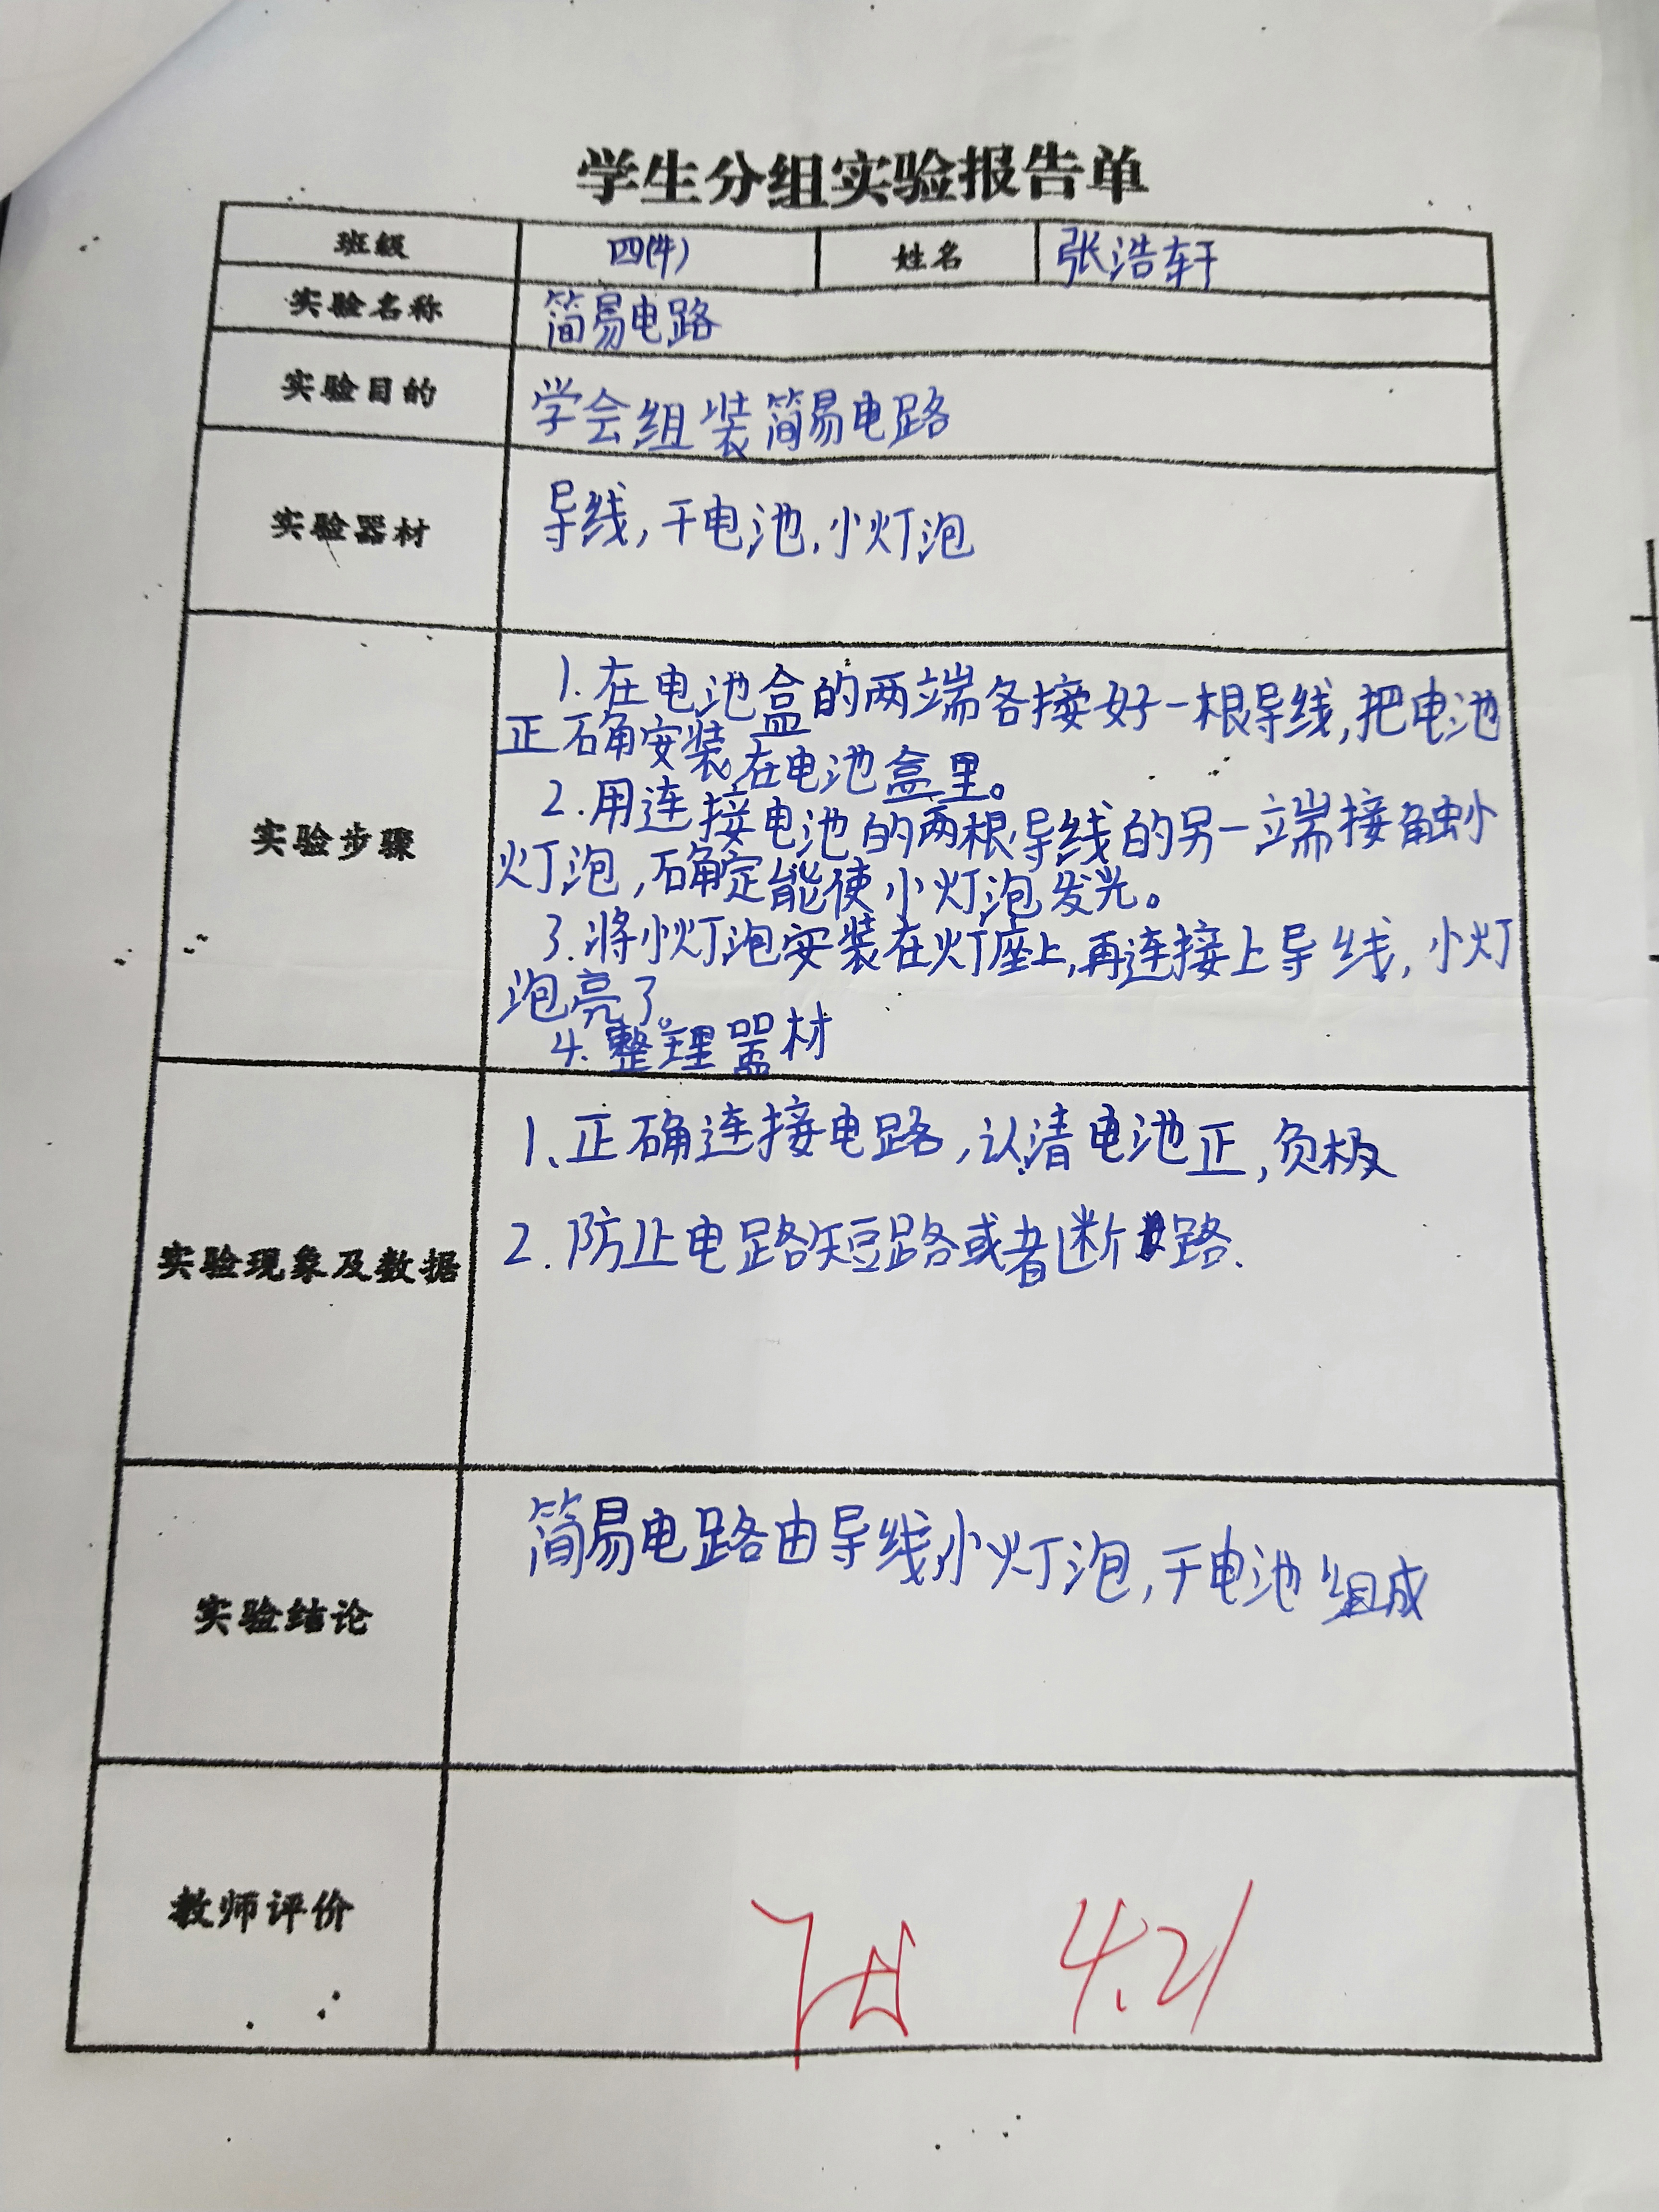 学生分组实验报告单
班级 四(4) 姓名 张浩轩
实验名称 简易电路
实验目的 学会组装简易电路
实验器材 导线,干电池,小灯泡
实验步骤
1.在电池盒的两端各接好一根导线,把电池
正确安装在电池盒里。
2.用连接电池的两根导线的另一端接触小
灯泡,确定能使小灯泡发光。
3.将小灯泡安装在灯座上,再连接上导线,小灯
泡亮了。
4.整理器材
实验现象及数据
1、正确连接电路,认清电池正,负极
2.防止电路短路或者断路.
实验结论
简易电路由导线,小灯泡,干电池组成
教师评价
4.21